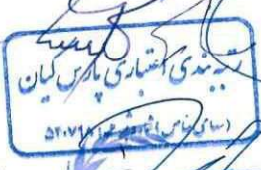 رتبه بندی اعتباری پارس کیان
(سهامی خاص) شماره ثبت: ۵۲۰۷۱۸